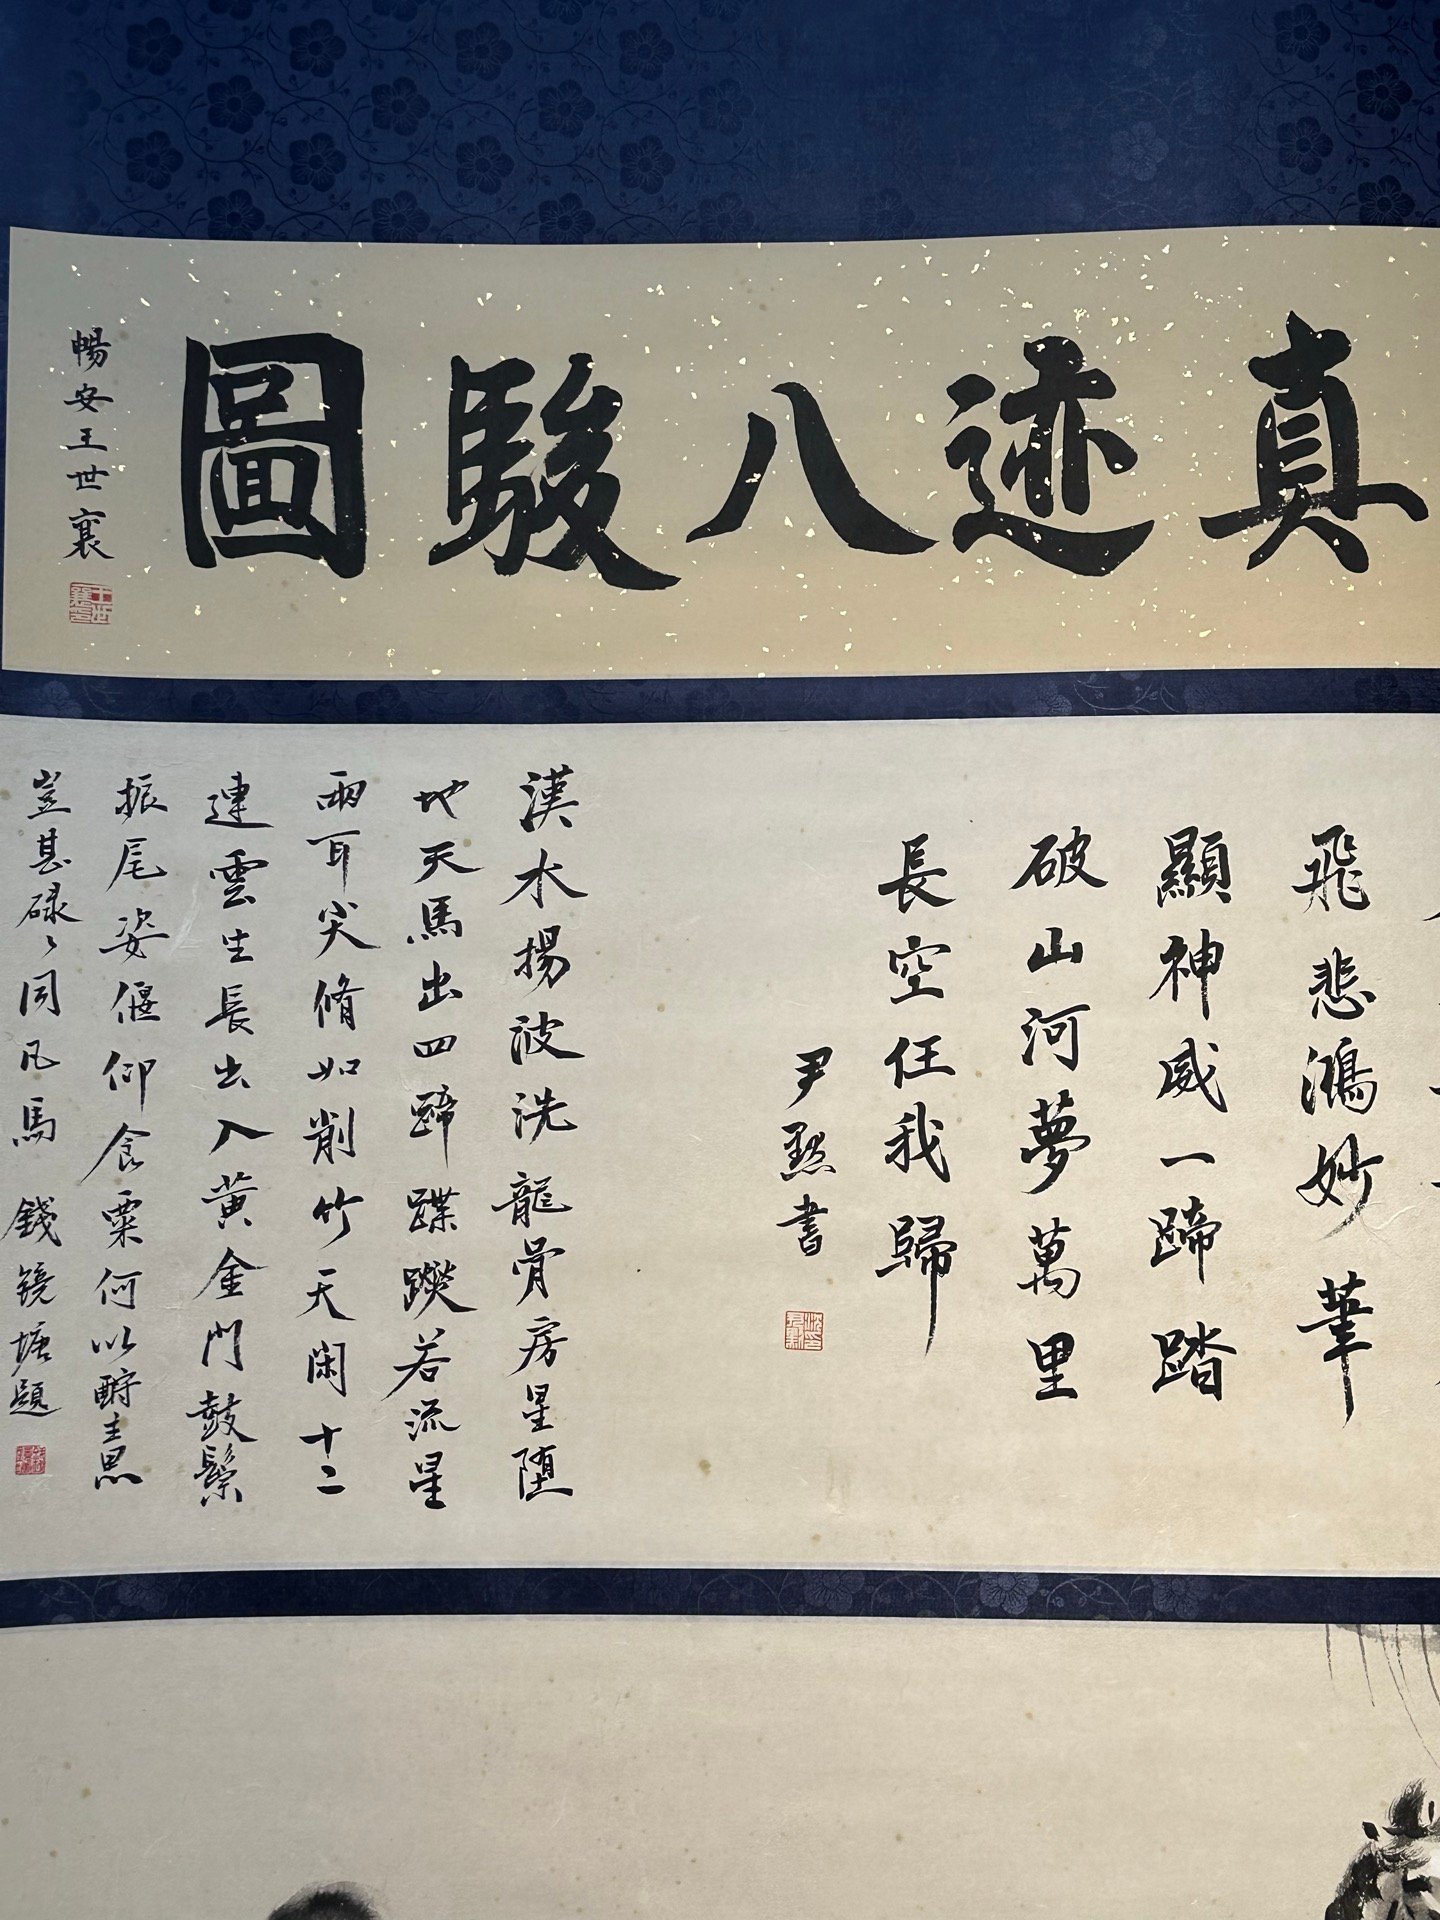 真迹八駿圖
暢安王世襄
飛悲鴻妙筆
顯神威一蹄踏
破山河夢萬里
長空任我歸
尹默書
漢水揚波洗龍骨房星堕
地天馬出四蹄蹀躞若流星
兩耳尖脩如削竹天閑十二
連雲生長出入黃金門鼓鬃
振尾姿偃仰食粟何以酧主恩
豈甚碌々同凡馬 錢镜塘題